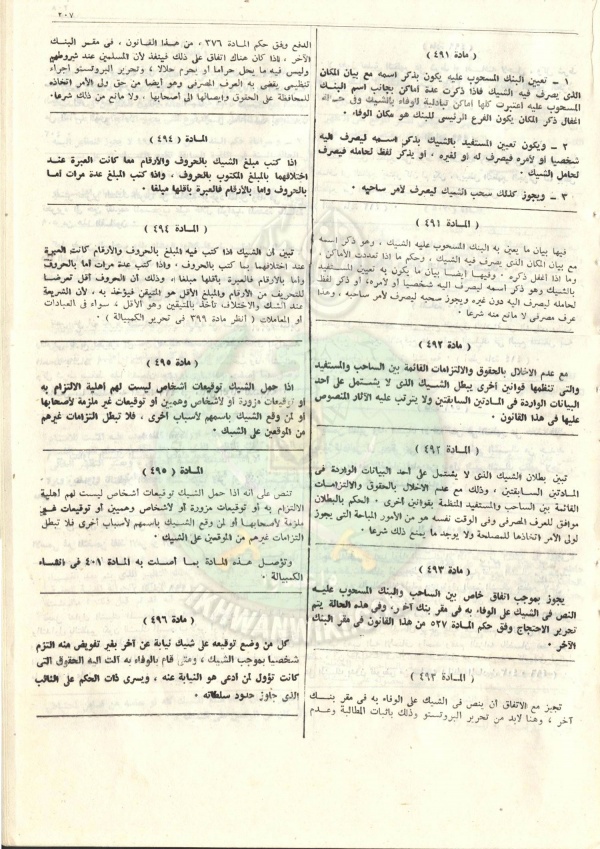 ٢٠٧
مادة (٤٩١)
١ ــ تعيين البنك المسحوب عليه يكون بذكر اسمه مع بيان المكان
الذى يصرف فيه الشيك فاذا ذكرت عدة أماكن بجانب اسم البنك
المسحوب عليه اعتبرت كلها أماكن تبادلية لوفاء بالشيك وفى حالة
اغفال ذكر مكان يكون الفرع الرئيسى للبنك هو مكان الوفاء .
٢ ــ ويكون تعيين المستفيد بالشيك بذكر اسمه ليصرف اليه
شخصيا أو لأمره فيصرف له أو لغيره ، أو بذكر لفظ لحامله فيصرف
لحامل الشيك .
٣ ــ ويجوز كذلك سحب الشيك ليصرف لأمر ساحبه .
المادة (٤٩١)
فيها بيان ما يعين به البنك المسحوب عليه الشيك ، وهو ذكر اسمه
مع بيان المكان الذى يصرف فيه الشيك ، وحكم ما اذا تعددت الأماكن ،
وما اذا أغفل ذكره . وفيها أيضا بيان ما يكون به تعيين المستفيد
بالشيك وهو ذكر اسمه ليصرف اليه شخصيا أو لأمره، أو ذكر لفظ
لحامله ليصرف اليه دون غيره ويجوز سحبه ليصرف لأمر ساحبه ، وهذا
عرف مصرفى لا مانع منه شرعا .
مادة (٤٩٢)
مع عدم الاخلال بالحقوق والالتزامات القائمة بين الساحب والمستفيد
والتى تنظمها قوانين أخرى يبطل الشيك الذى لا يشتمل على أحد
البيانات الواردة فى المادتين السابقتين ولا يترتب عليه الآثار المنصوص
عليها فى هذا القانون .
المادة (٤٩٢)
تبين بطلان الشيك الذى لا يشتمل على أحد البيانات الواردة فى
المادتين السابقتين ، وذلك مع عدم الاخلال بالحقوق والالتزامات
القائمة بين الساحب والمستفيد المنظمة بقوانين أخرى . الحكم بالبطلان
موافق للعرف المصرفى وفى الوقت نفسه هو من الأمور المباحة التى يجوز
لولى الأمر اتخاذها للمصلحة ولا يوجد ما يمنع ذلك شرعا .
مادة (٤٩٣)
يجوز بموجب اتفاق خاص بين الساحب والبنك المسحوب عليه
النص فى الشيك على الوفاء به فى مقر بنك آخر ، وفى هذه الحالة يتم
تحرير الاحتجاج وفق حكم المادة ٥٢٧ من هذا القانون فى مقر البنك
الآخر .
المادة (٤٩٣)
تجيز مع الاتفاق أن ينص فى الشيك على الوفاء به فى مقر بنك
آخر ، وهنا لابد من تحرير البروتستو وذلك باثبات المطالبة وعدم
الدفع وفق حكم المادة ٣٧٦ ، من هذا القانون ، فى مقر البنك
الآخر ، اذا كان هناك اتفاق على ذلك فينفذ لأن المسلمين عند شروطهم
وليس فيه ما يحل حراما أو يحرم حلالا ، وتحرير البروتستو اجراء
تنظيمى يقضى به العرف المصرفى وهو أيضا من حق ولى الأمر اتخاذه
للمحافظة على الحقوق وايصالها الى أصحابها ، ولا مانع من ذلك شرعا.
المادة (٤٩٤)
اذا كتب مبلغ الشيك بالحروف والأرقام معا كانت العبرة عند
اختلافهما بالمبلغ المكتوب بالحروف ، واذا كتب المبلغ عدة مرات اما
بالحروف واما بالأرقام فالعبرة بأقلها مبلغا .
المادة (٤٩٤)
تبين أن الشيك اذا كتب فيه المبلغ بالحروف والأرقام كانت العبرة
عند اختلافهما بما كتب بالحروف ، واذا كتب عدة مرات أما بالحروف
واما بالأرقام فالعبرة بأقلها مبلغا ، وذلك أن الحروف أقل تعرضا
للتحريف من الأرقام والمبلغ الأقل هو المتيقن فيؤخذ به ، لأن الشريعة
عند الشك والاختلاف تأخذ بالمتيقن وهو الأقل ، سواء فى العبادات
أو المعاملات ( أنظر مادة ٣٩٩ فى تحرير الكمبيالة ) .
مادة (٤٩٥)
اذا حمل الشيك توقيعات أشخاص ليست لهم أهلية الالتزام به
أو توقيعات مزورة أو لأشخاص وهميين أو توقيعات غير ملزمة لأصحابها
أو لمن وقع الشيك باسمهم لأسباب أخرى ، فلا تبطل التزامات غيرهم
من الموقعين على الشيك .
المادة (٤٩٥)
تنص على أنه اذا حمل الشيك توقيعات أشخاص ليست لهم أهلية
الالتزام به أو توقيعات مزورة أو لأشخاص وهميين أو توقيعات غير
ملزمة لأصحابها أو لمن وقع الشيك باسمهم لأسباب أخرى فلا تبطل
التزامات غيرهم من الموقعين على الشيك .
وتؤصل هذه المادة بما أصلت به المادة ٤٠١ فى انشاء
الكمبيالة .
مادة (٤٩٦)
كل من وضع توقيعه على شيك نيابة عن آخر بغير تفويض منه التزم
شخصيا بموجب الشيك ، ومتى قام بالوفاء به آلت اليه الحقوق التى
كانت تؤول لمن ادعى هو النيابة عنه ، ويسرى ذات الحكم على النائب
الذى جاوز حدود سلطاته .
IKHWANWIKI.COM